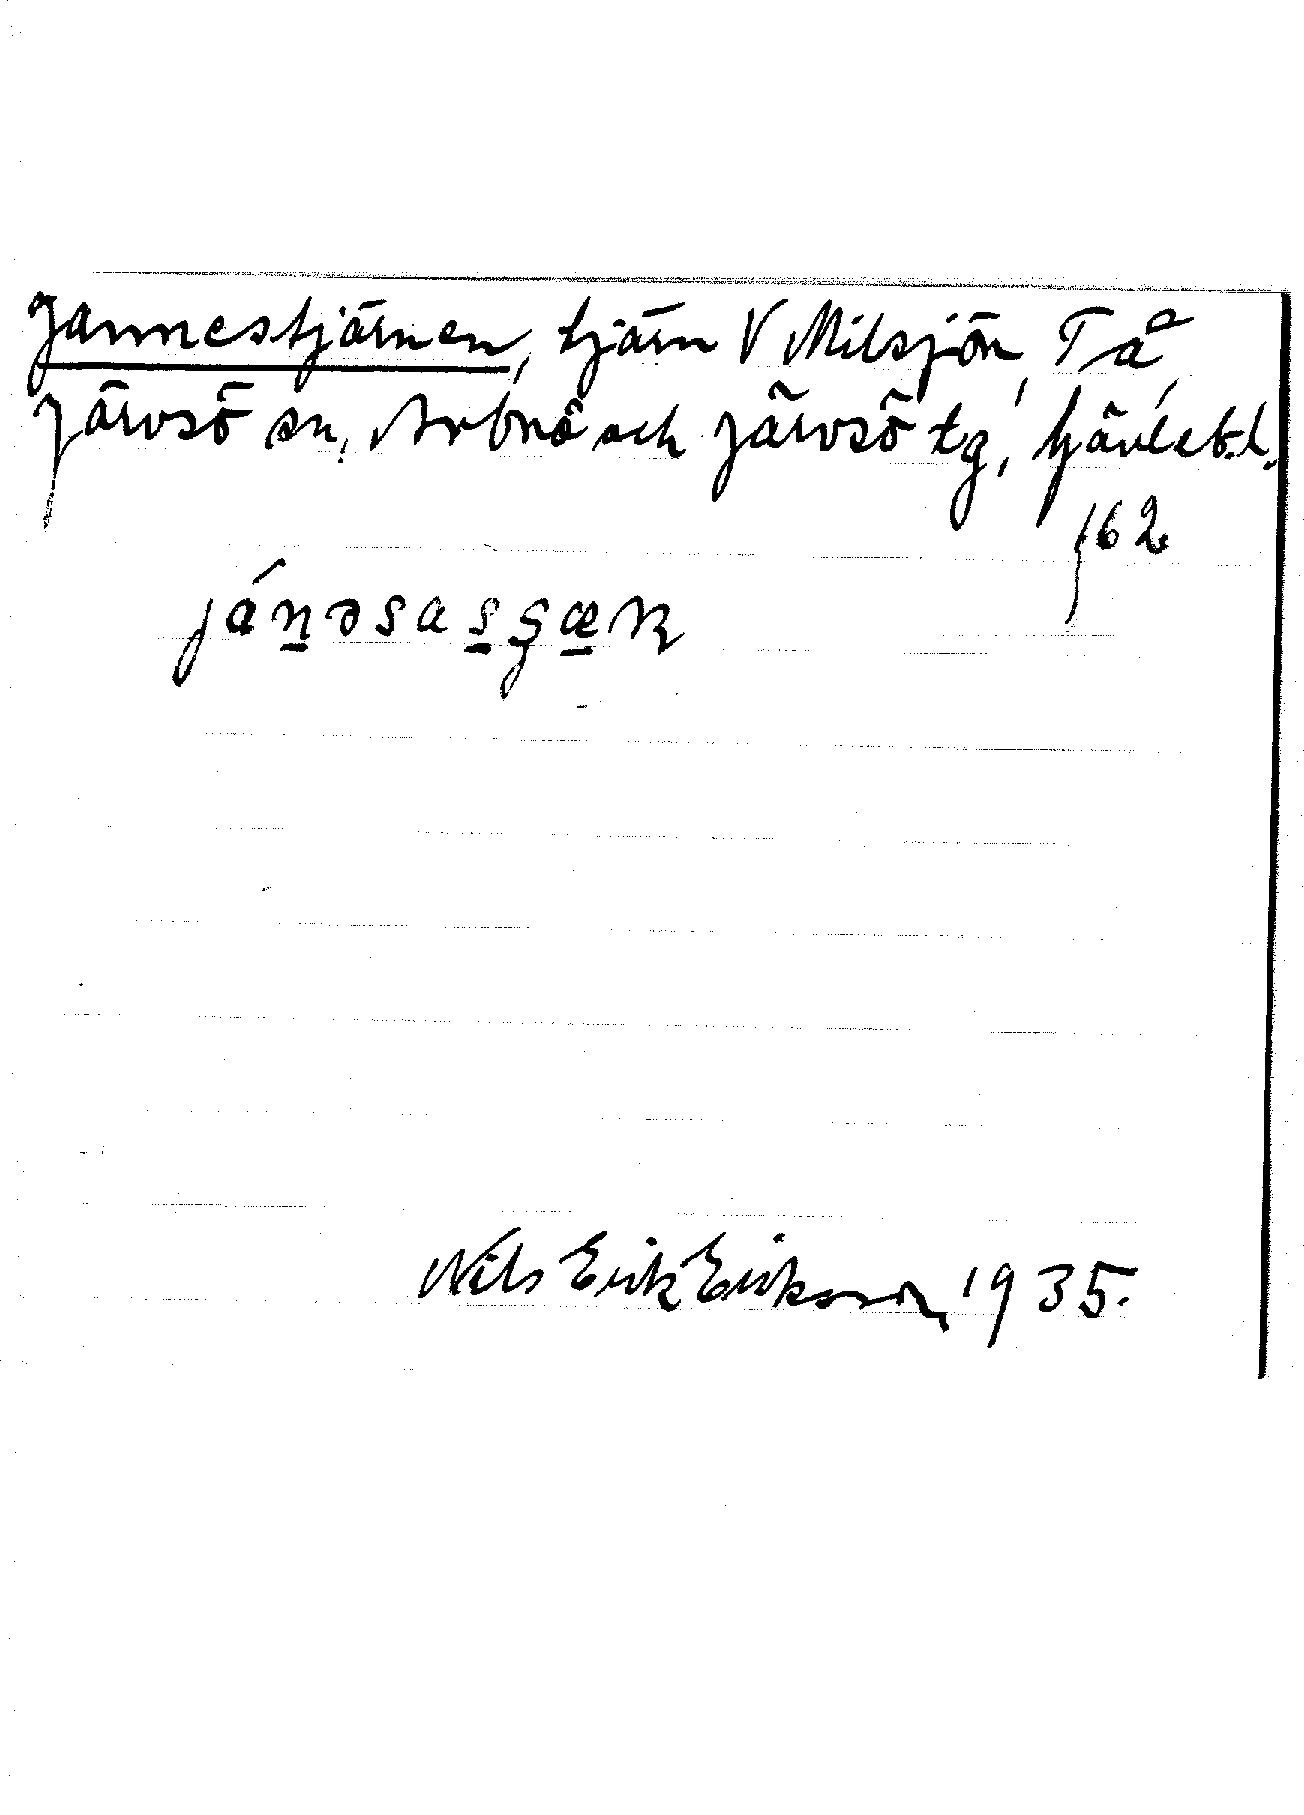 Jannestjärnen, tjärn V Milsjön, Tå,
Järvsö sn, Arbrå och Järvsö tg, Gävleb.l.
162
já<u>n</u>əsa<u>s</u>ʂ<u>æ</u>ɳ
Nils Erik Eriksson 1935.